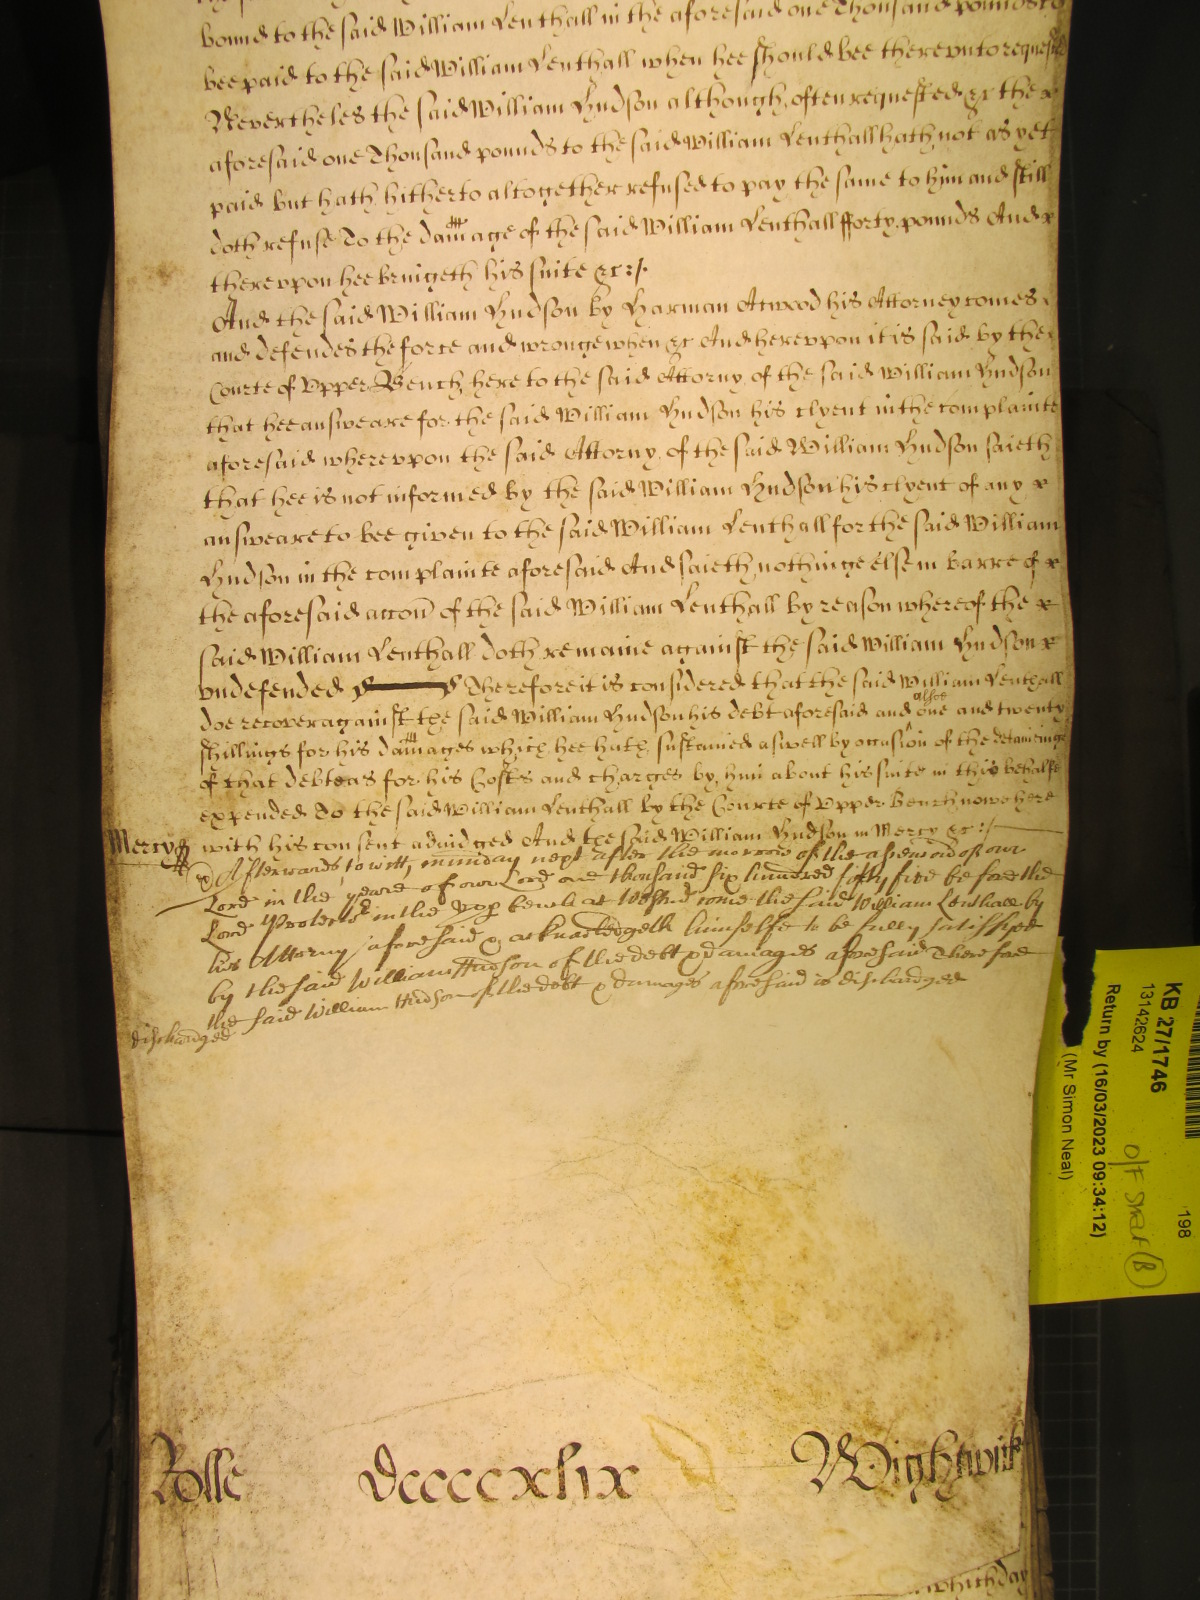 bound to the said William Lenthall in the aforesaid one Thousand pounds to
bee paid to the said William Lenthall when hee should bee there unto requested
Nevertheles the said William Hudson although often requested &c the x
aforesaid one Thousand pounds to the said William Lenthall hath not as yet
paid but hath hitherto altogether refused to pay the same to him and still
doth refuse To the damage of the said William Lenthall fforty pounds And x
thereupon hee bringeth his suite &c:/.
And the said William Hudson by Harman Atwood his Attorney comes
and defendes the force and wronge when &c And hereupon it is said by the
Courte of Upper Bench here to the said Attorny of the said William Hudson
that hee answeare for the said William Hudson his clyent in the complainte
aforesaid whereupon the said Attorny of the said William Hudson saieth
that hee is not informed by the said William Hudson his clyent of any x
answeare to bee given to the said William Lenthall for the said William
Hudson in the complainte aforesaid And saieth nothinge else in barre of x
the aforesaid accon of the said William Lenthall by reason whereof the x
said William Lenthall doth remaine against the said William Hudson x
undefended Therefore it is considered that the said William Lenthall
doe recover against the said William Hudson his debt aforesaid and alsoe one and twenty
shillings for his damages which hee hath sustained aswell by occasion of the detaininge
of that debt as for his Costs and charges by him about his suite in this behalfe
expended To the said William Lenthall by the Courte of Upper Bench nowe here
Mercy with his consent adiudged And the said William Hudson in Mercy &c:/
Afterwards to witt, munday next after the morrow of the assencion of our
Lord in the yeare of our Lord one thousand six hundred fifty five before the
Lord Protector in the upp bench at Westmr come the said William Lenthall by
his Attorny aforesaid & acknowledgeth himselfe to be fully satisfyed
by the said William Hudson of the debt & damages aforesaid Therefore
the said William Hudson of the debt & damages aforesaid is discharged
discharged
Rolle Dccccxlix Wightwick
which day
KB 27/1746
13142624
Return by (16/03/2023 09:34:12)
(Mr Simon Neal)
198
O/F
(B)